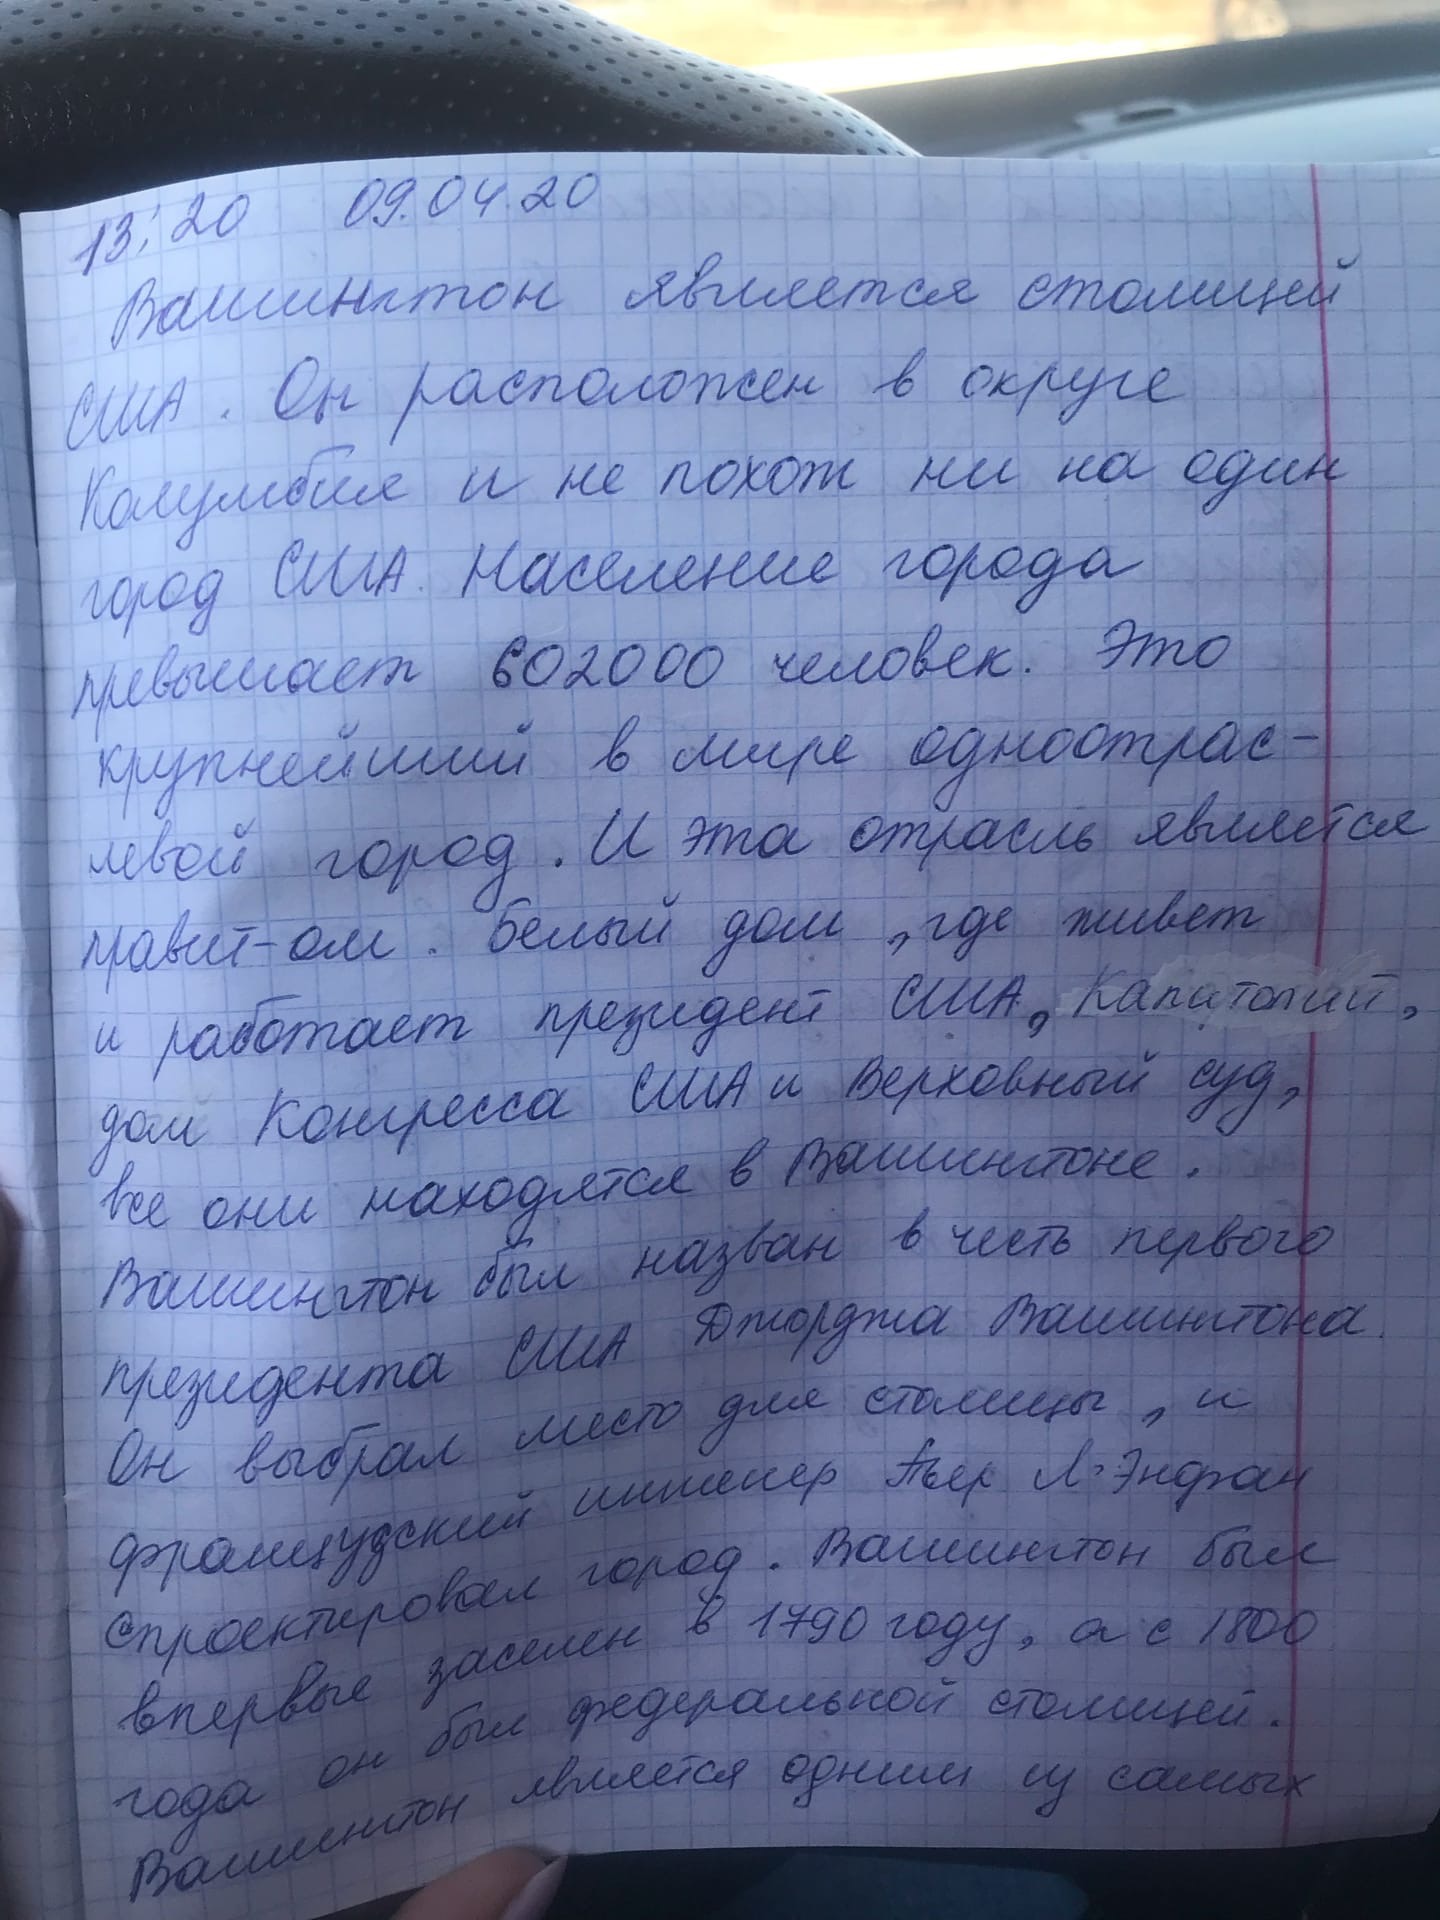 13:20 09.04.20
Вашингтон является столицей
США. Он расположен в округе
Колумбия и не похож ни на один
город США. Население города
превышает 602000 человек. Это
крупнейший в мире одноотрас-
левой город. И эта отрасль является
правит-ом. Белый дом, где живет
и работает президент США, Капитолий,
дом Конгресса США и Верховный суд,
все они находятся в Вашингтоне.
Вашингтон был назван в честь первого
президента США Джорджа Вашингтона.
Он выбрал место для столицы, и
французский инженер Пьер Л'Энфан
спроектировал город. Вашингтон был
впервые заселен в 1790 году, а с 1800
года он был федеральной столицей.
Вашингтон является одним из самых